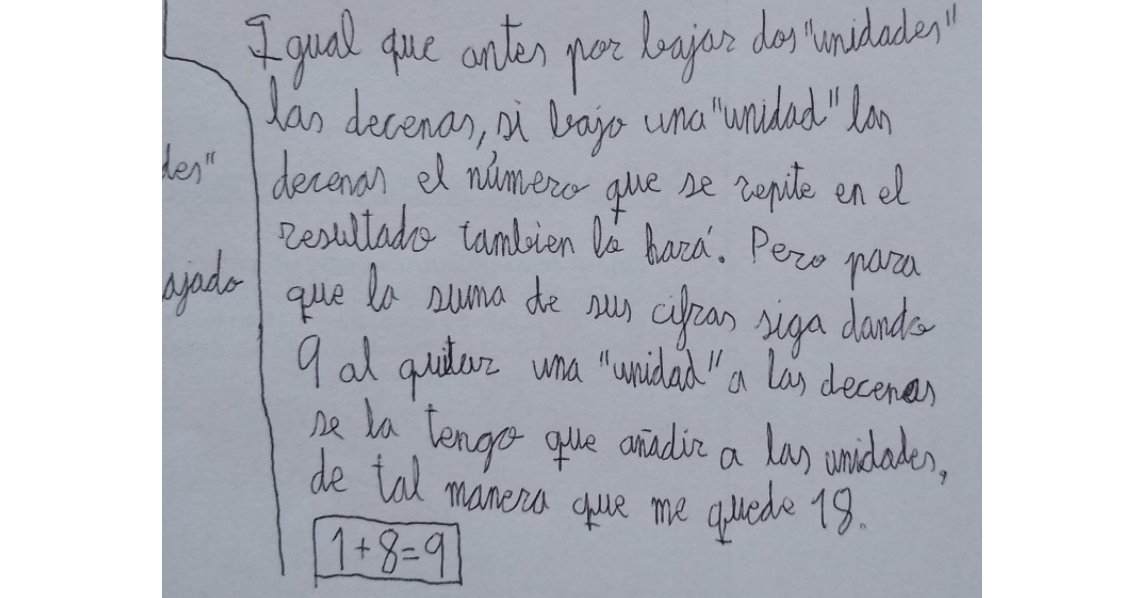 Igual que antes por bajar dos "unidades"
las decenas, si bajo una "unidad" las
decenas el número que se repite en el
resultado tambien lo hará. Pero para
que la suma de sus cifras siga dando
9 al quitar una "unidad" a las decenas
se la tengo que añadir a las unidades,
de tal manera que me quede 18.
1+8=9
des"
ajado